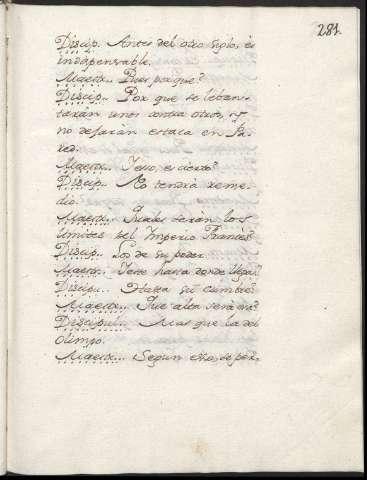 281.
Discip. Antes del otro siglo, es
indispensable.
Maestr.. Pues por que?
Discip.. Por que se leban-
taran unos contra otros, y
no dejaran estaca en Pa-
red.
Maestr.. Y eso, es cierto?
Discip.. No tendrá reme-
dio.
Maestr.. Quales seran los
limites del Imperio Francés?
Discip.. Los de su poder.
Maestr.. Y este hasta donde llega?
Discipu.. Hasta su cumbre.
Maestr... Que alta será esa?
Discipul.. Mas que la del
Olimpo.
Maestr... Segun eso, se per-